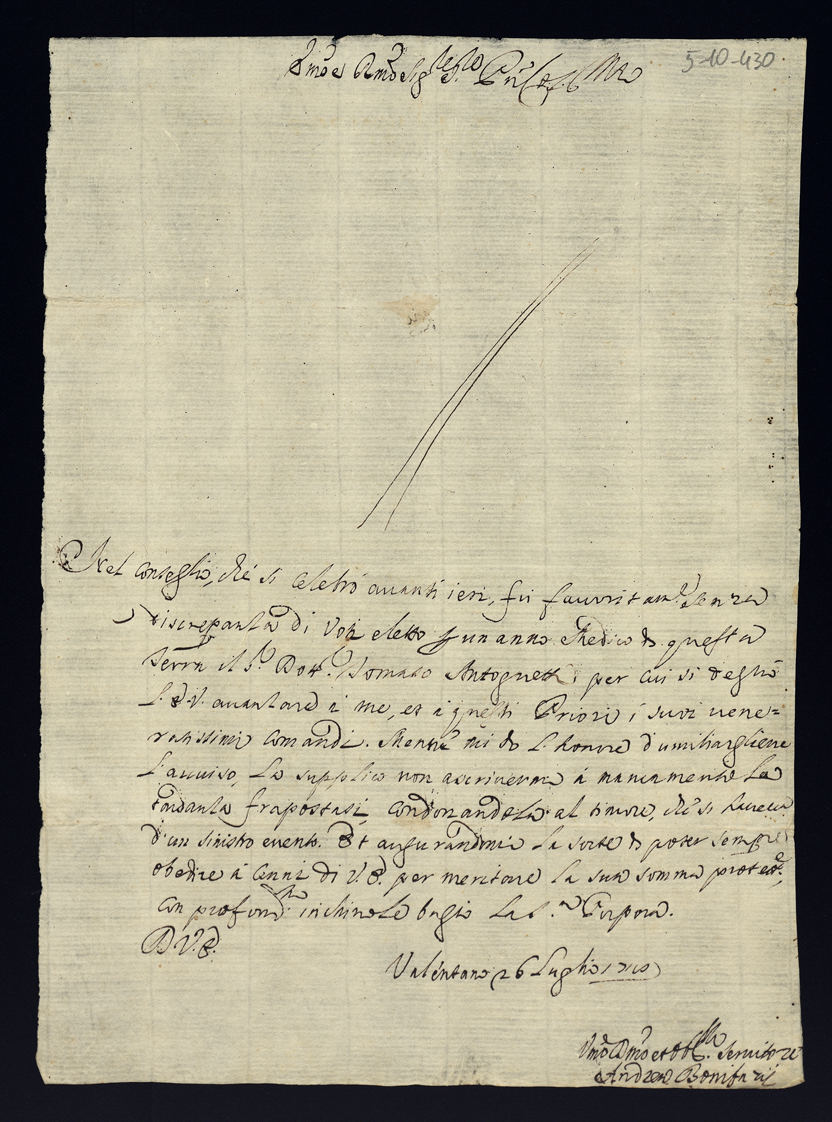 5-10-430
Em̃o e Rm̃o Sig.re Sig.re Prñe Col.mo
Nel conseglio, che si celebrò avanti ieri, fù favoritam.te senza
discrepanza di Voti eletto p un anno Medico di questa
Terra il S.r Dott.r Tomaso Antognetti per cui si degnò
L'E.V. avanzare à me, et à questi Priori i suoi vene=
ratissimi comandi. Mentre mi do l'honore d'umiliargliene
l'avviso, La supplico non ascrivermi à mancamento La
tardanza frapostasi, condonandola al timore, che si haveva
d'un sinistro evento. Et augurandomi la sorte di poter sempre
obedire à Cenni di V.E. per meritare la sua somma protez.e,
con profond.mo inchino le bagio la S.ra Porpora.
D V.E.
Valentano 26 Luglio
Um̃o Dm̃o et Obb.mo Servitore
Andrea Bonifazi